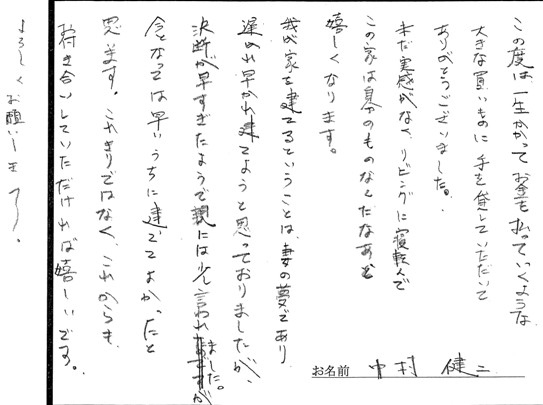 この度は一生かかってお金を払っていくような
大きな買いものに手を貸していただいて
ありがとうございました。
まだ実感がなく、リビングに寝転んで
この家は自分のものなんだなあと
嬉しくなります。
我が家を建てるということは、妻の夢であり
遅かれ早かれ建てようと思っておりましたが、
決断が早すぎたようで親には少し言われました。
今となっては早いうちに建ててよかったと
思います。これきりではなく、これからも
お付き合いしていただければ嬉しいです。
よろしくお願いします。
お名前 中村 健二